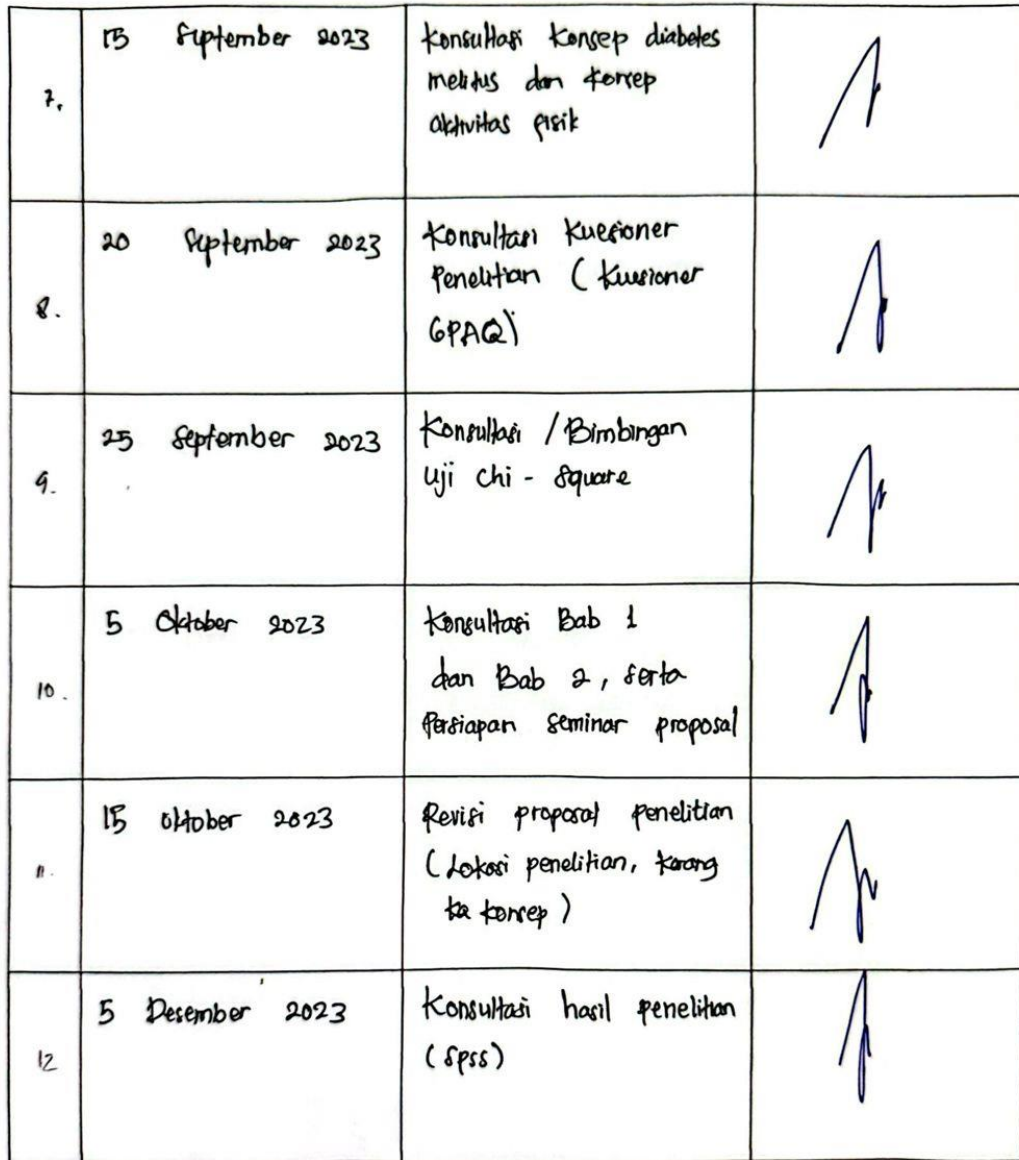 7. 15 September 2023 Konsultasi Konsep diabetes
melitus dan konsep
aktivitas fisik
20 September 2023 Konsultasi Kuesioner
Penelitian (Kuesioner
8. GPAQ)
25 September 2023 Konsultasi / Bimbingan
9. Uji chi - Square
5 Oktober 2023 Konsultasi Bab 1
10. dan Bab 2, serta
Persiapan seminar proposal
15 Oktober 2023 Revisi proposal penelitian
11. (Lokasi penelitian, kerang
ka konsep)
5 Desember 2023 Konsultasi hasil penelitian
12 (SPSS)